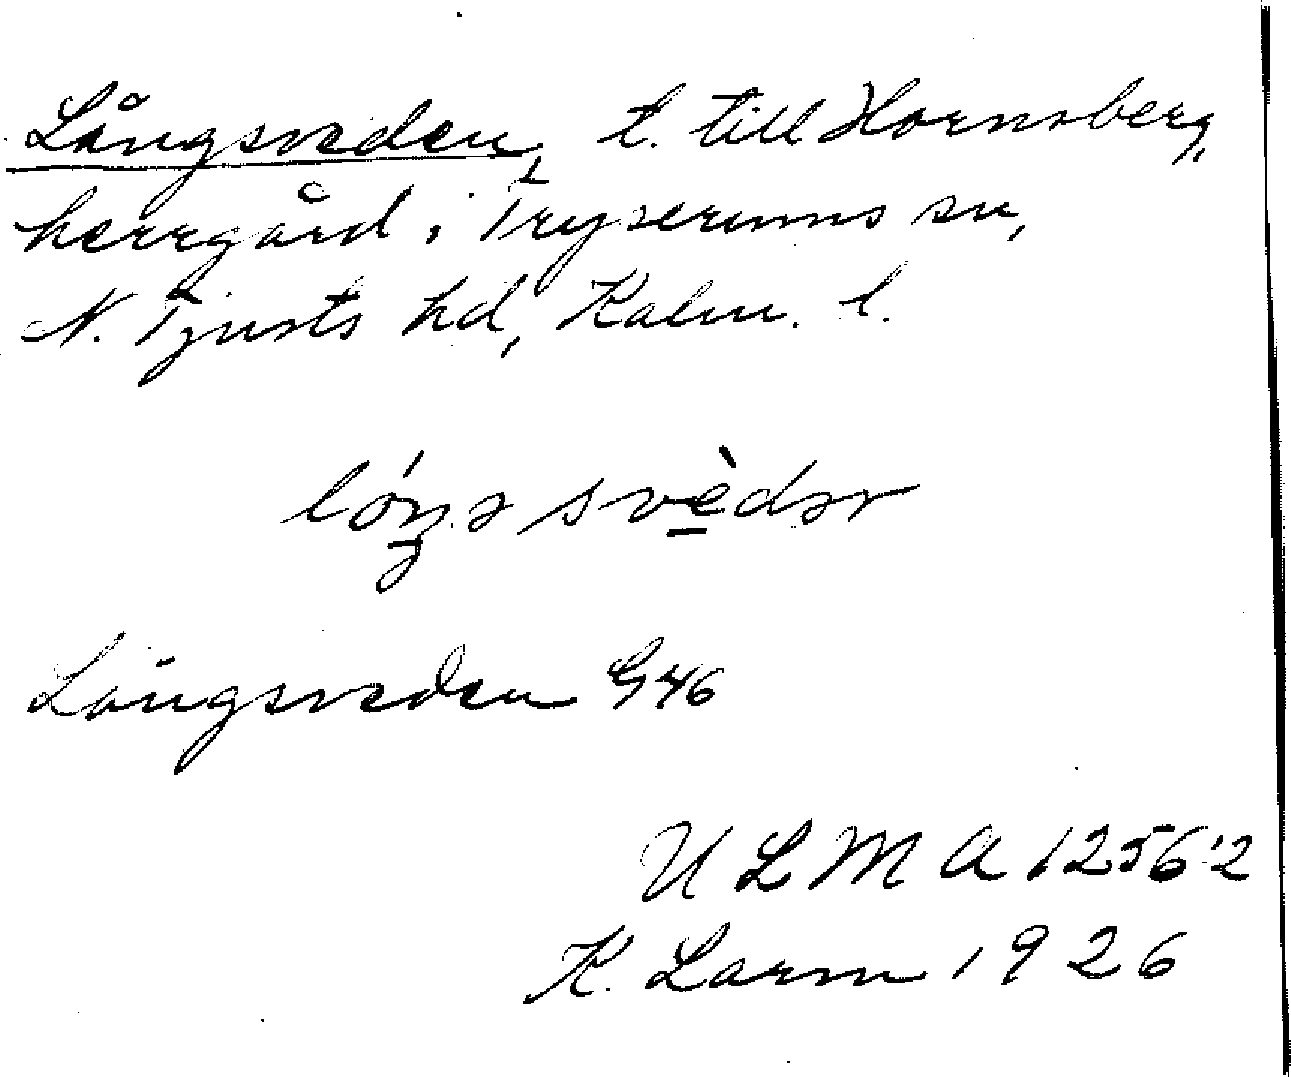 Långsveden, t. till Hornsberg,
herrgård i Tryserums sn,
N. Tjusts hd, Kalm. l.
Långsveden G46
ULMA 1256:2
K. Larm 1926